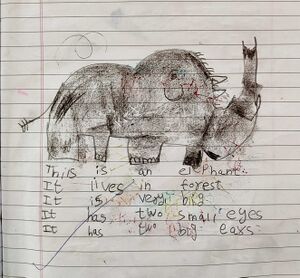 This is an elephant.
It lives in forest
It is very big
It has two small eyes
It has two big ears.